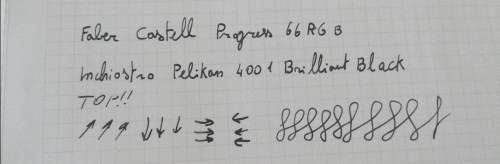 Faber Castell Progress 66 RG B
Inchiostro Pelikan 4001 Brilliant Black
TOP!!